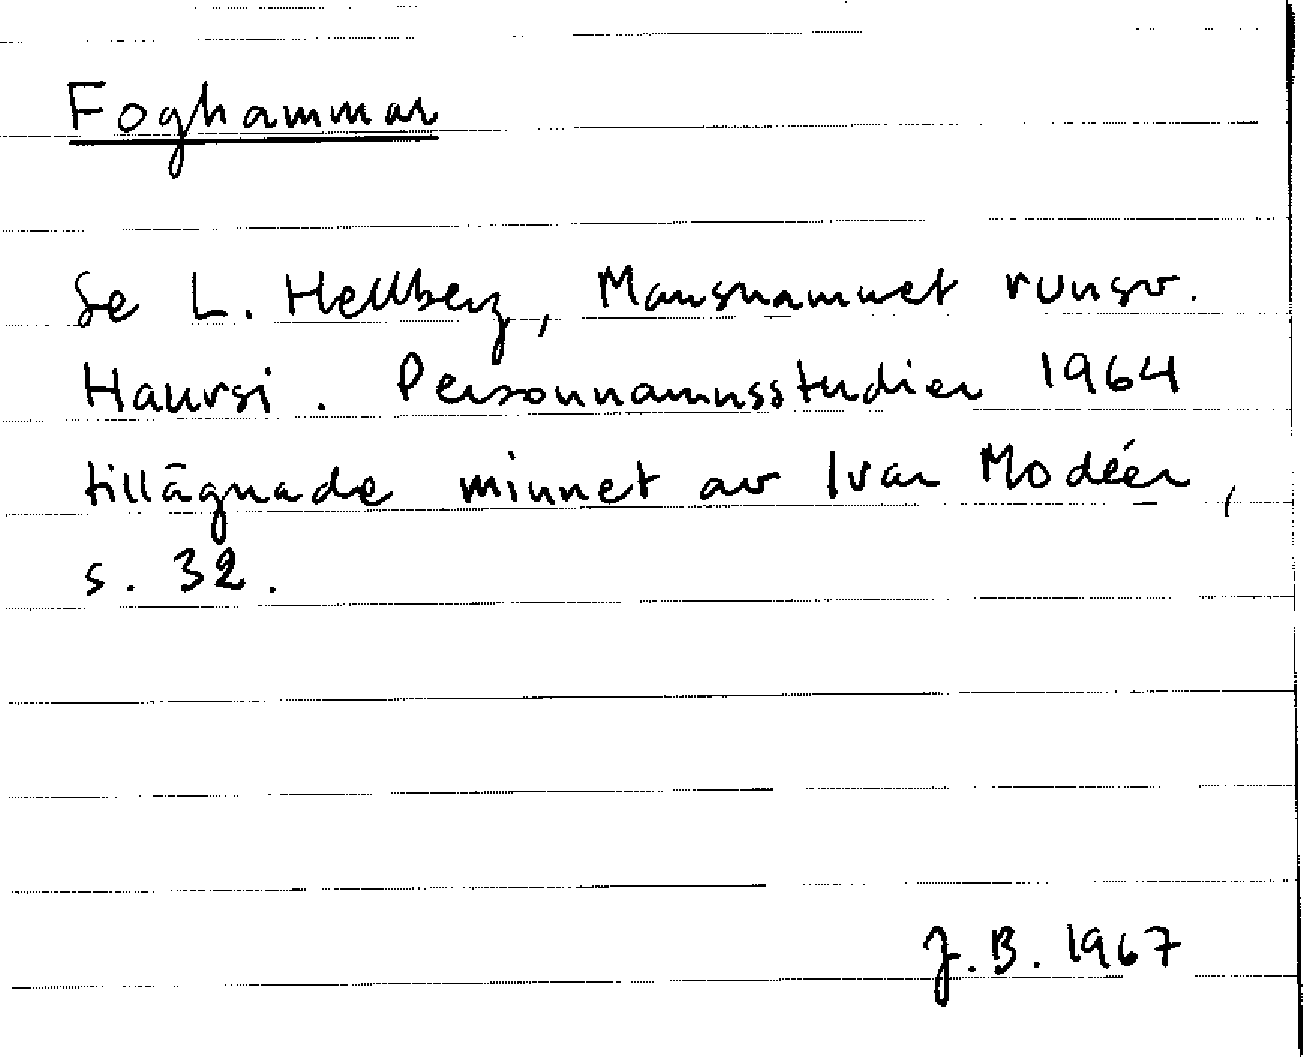 Foghammar
Se L. Hellberg, Mansnamnet runsv.
Haursi. Personnamnsstudier 1964
tillägnade minnet av Ivar Modéer,
s. 32.
J.B. 1967